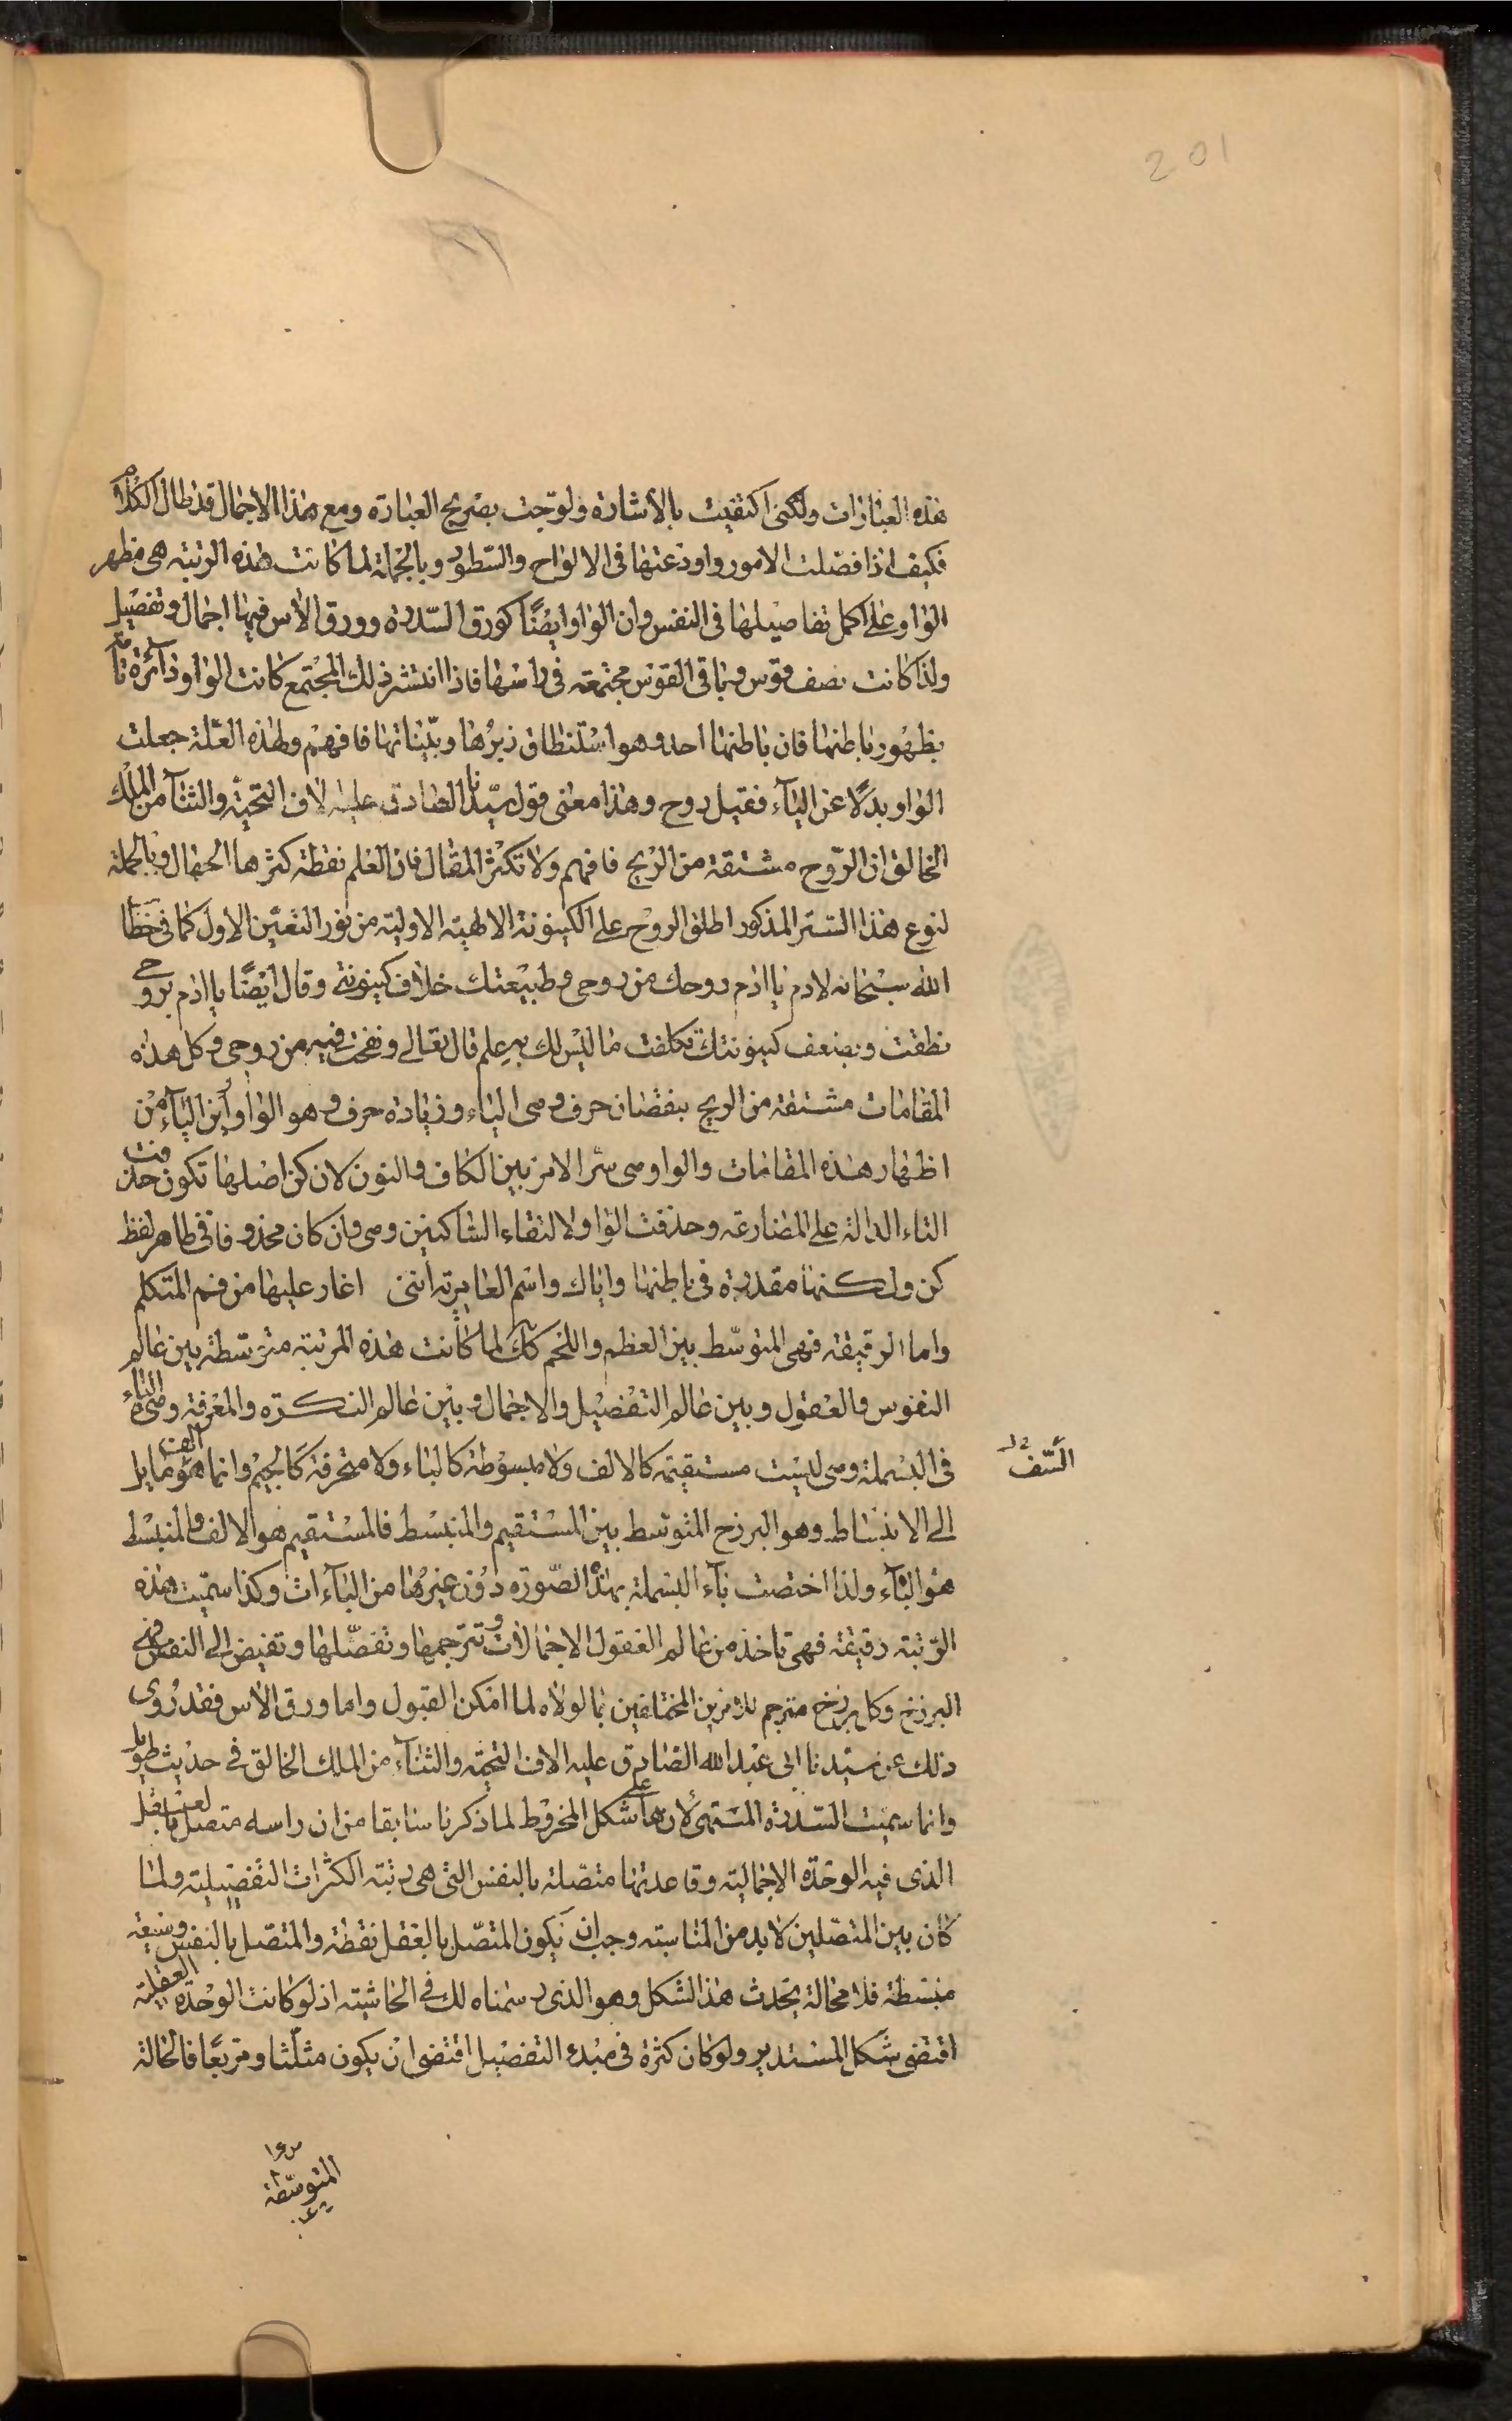 201
هذه العبارات ولكنى اكتفيت بالأشارة ولوّحت بصريح العبارة ومع هذا الاجمال قد طال الكلام
فكيف اذا فصّلت الامور واودعتها فى الالواح والسّطور وبالجملة لما كانت هذه الرتبته هى مظهر
الواو على اكمل تفاصيلها فى النفس وان الواو ايضًا كورق السّدرة وورق الاس فيها اجمال وتفصيل
ولذا كانت نصف قوس وباقى القوس مجتمعه فى راسها فاذا انتشر ذلك المجتمع كانت الواو دآئرة تآمّة
بظهور باطنها فان باطنها احد وهو استنطاق زبرها وبيّناتها فافهم ولهذه العلّة جعلت
الواو بدلًا عن اليآء فقيل روح وهذا معنى قول سيّدنا الصادق عليه الاف التحيّة والثنآء من الملك
الخالق ان الرّوح مشتقة من الريح فافهم ولا تكثر المقال فان العلم نقطة كثرها الجهال وبالجملة
لنوع هذا الستر المذكور اطلق الروح على الكينونة الالهية الاولية من نور التعيّن الاول كما فى خطاب
الله سبحانه لادم يا ادم روحك من روحى وطبيعتك خلاف كينونتى وقال ايضًا يا ادم بروحى
نطقت وبضعف كينونتك تكلفت ما ليس لك به علم قال تعالى ونفخت فيه من روحى وكل هذه
المقامات مشتقة من الريح بنقصان حرف وهى الياء وزيادة حرف وهو الواو أين اليآء من
اظهار هذه المقامات والواو هى سرّ الامر بين الكاف والنون لان كن اصلها تكون حذفت
التاء الدالة على المضارعه وحذفت الواو لالتقاء الساكنين وهى وان كان محذوفا فى ظاهر لفظ
كن ولكنها مقدرة فى باطنها واياك واسم العامرية اننى اغار عليها من فم المتكلم
واما الرقيقه فهى المتوسّط بين العظم واللحم كك لما كانت هذه المرتبة متوسّطة بين عالم
النفوس والعقول وبين عالم التفصيل والاجمال وبين عالم النكرة والمعرفة وهى الباء
فى البسملة وهى ليست مستقيمه كالالف ولا مبسوطة كالباء ولا منحرفة كالجيم وانما هو الف مايل
السّفر
الى الانبساط وهو البرزخ المتوسط بين المستقيم والمنبسط فالمستقيم هو الالف والمنبسط
هو البآء ولذا اختصت بآء البسملة بهذه الصّورة دون غيرها من البآءات وكذا سمّيت هذه
الرّتبته رقيقه فهى تاخذ من عالم العقول الاجمالات وتترجمها وتفصّلها وتفيض الى النفس فهى
البرزخ وكل برزخ مترجم للامرين المختلفين بما لولاه لما امكن القبول واما ورق الاس فقد رُوى
ذلك عن سيّدنا ابى عبد الله الصادق عليه الاف التحيّة والثنآء من الملك الخالق فى حديث طويل
وانما سميت السّدرة المنتهى لأن لها على شكل المخروط لما ذكرنا سابقا من ان راسه متصل بالعقل
الذى فيه الوحدة الاجمالية وقاعدتها متصلة بالنفس التى هى رتبة الكثرات التفصيلية ولما
كان بين المتصلين لابد من المناسبته وجب ان يكون المتصل بالعقل نقطة والمتصل بالنفس وسيعة
منبسطة فلا محالة يحدث هذا الشكل وهو الذى رسمناه لك فى الحاشيته اذ لو كانت الوحدة العقلية
اقتضى شكل المستدير ولو كان كثرة فى مبدء التفصيل اقتضى ان يكون مثلّثا ومربّعًا فالحالة
المتوسّطة